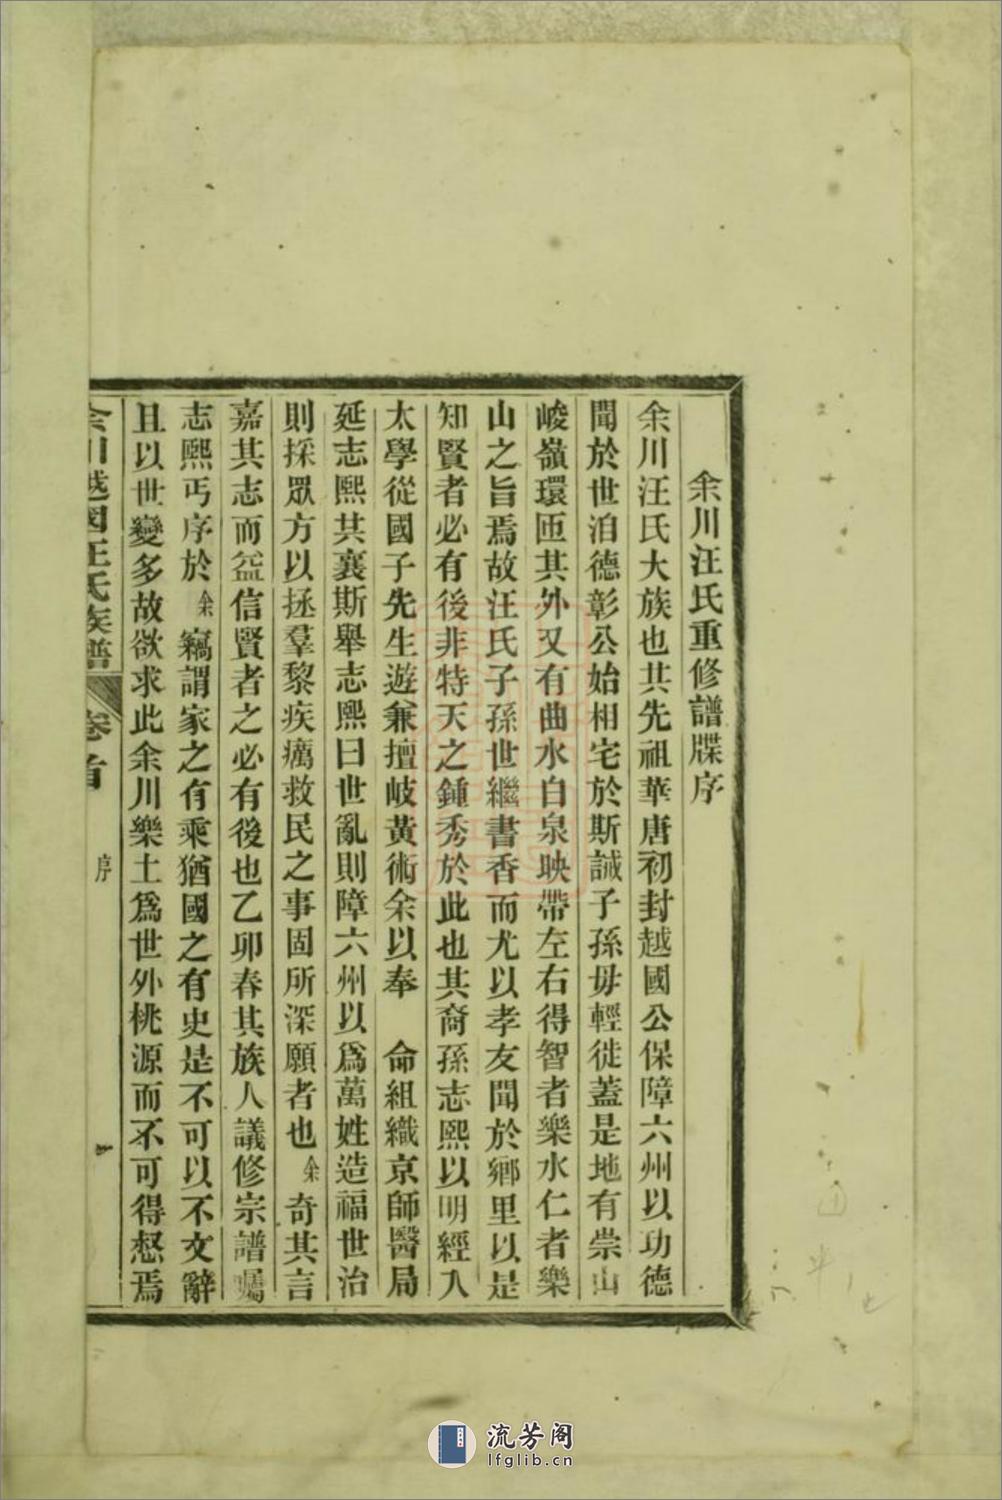 余川汪氏重修譜牒序
余川汪氏大族也其先祖華唐初封越國公保障六州以功德
聞於世洎德彰公始相宅於斯誡子孫毋輕徙蓋是地有崇山
峻嶺環匝其外又有曲水白泉映帶左右得智者樂水仁者樂
山之旨焉故汪氏子孫世繼書香而尤以孝友聞於鄉里以是
知賢者必有後非特天之鍾秀於此也其裔孫志熙以明經入
太學從國子先生遊兼擅岐黃術余以奉　命組織京師醫局
延志熙共襄斯舉志熙曰世亂則障六州以爲萬姓造福世治
則採眾方以拯羣黎疾癘救民之事固所深願者也余奇其言
嘉其志而益信賢者之必有後也乙卯春其族人議修宗譜囑
志熙丐序於余竊謂家之有乘猶國之有史是不可以不文辭
且以世變多故欲求此余川樂土爲世外桃源而不可得惄焉
余川越國汪氏族譜　卷首　序　一
流芳阁
lfglib.cn